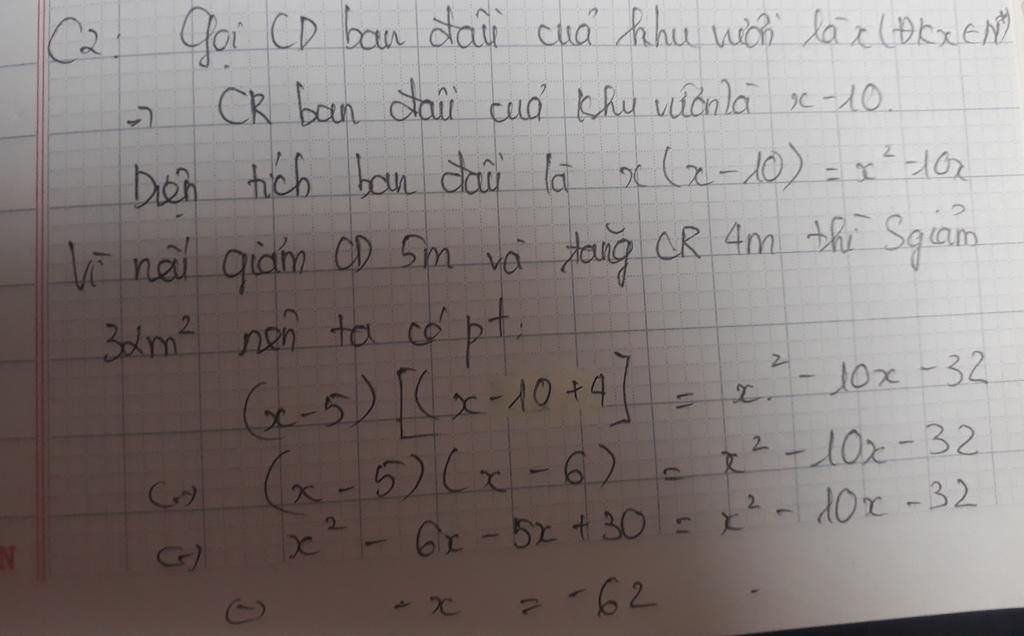 C2: Gọi CD ban đầu của khu vườn là x (ĐK x ∈ N*)
=> CR ban đầu của khu vườn là x - 10.
Diện tích ban đầu là x (x - 10) = x² - 10x
Vì nếu giảm CD 5m và tăng CR 4m thì S giảm
32m² nên ta có pt:
(x - 5) [(x - 10 + 4] = x² - 10x - 32
<=> (x - 5) (x - 6) = x² - 10x - 32
<=> x² - 6x - 5x + 30 = x² - 10x - 32
<=> - x = - 62